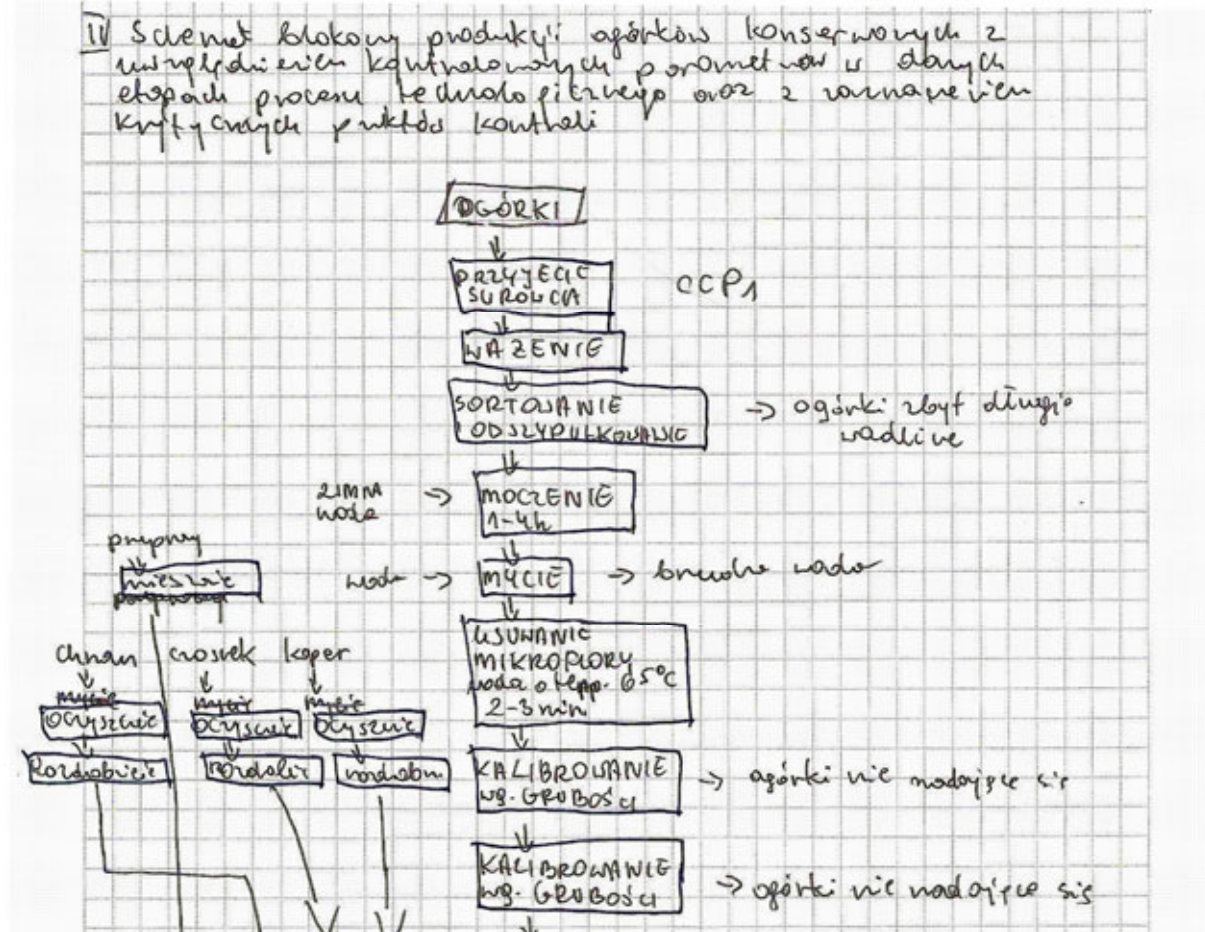 II Schemat blokowy produkcji ogórków konserwowych z
uwzględnieniem kontrolowanych parametrów w danych
etapach procesu technologicznego oraz z zaznaczeniem
krytycznych punktów kontroli
OGÓRKI
PRZYJĘCIE
SUROWCA
CCP1
WAŻENIE
SORTOWANIE
I ODSZYPUŁKOWANIE
→ ogórki zbyt długie
wadliwe
ZIMNA
woda →
MOCZENIE
1-4h
przyprawy
mieszanie
woda →
MYCIE
→ brudna woda
USUWANIE
MIKROFLORY
woda o temp. 65°C
2-3 min
chrzan czosnek koper
mycie mycie mycie
oczyszczanie
KALIBROWANIE
wg. GRUBOŚCI
→ ogórki nie nadające się
KALIBROWANIE
wg. GRUBOŚCI
→ ogórki nie nadające się